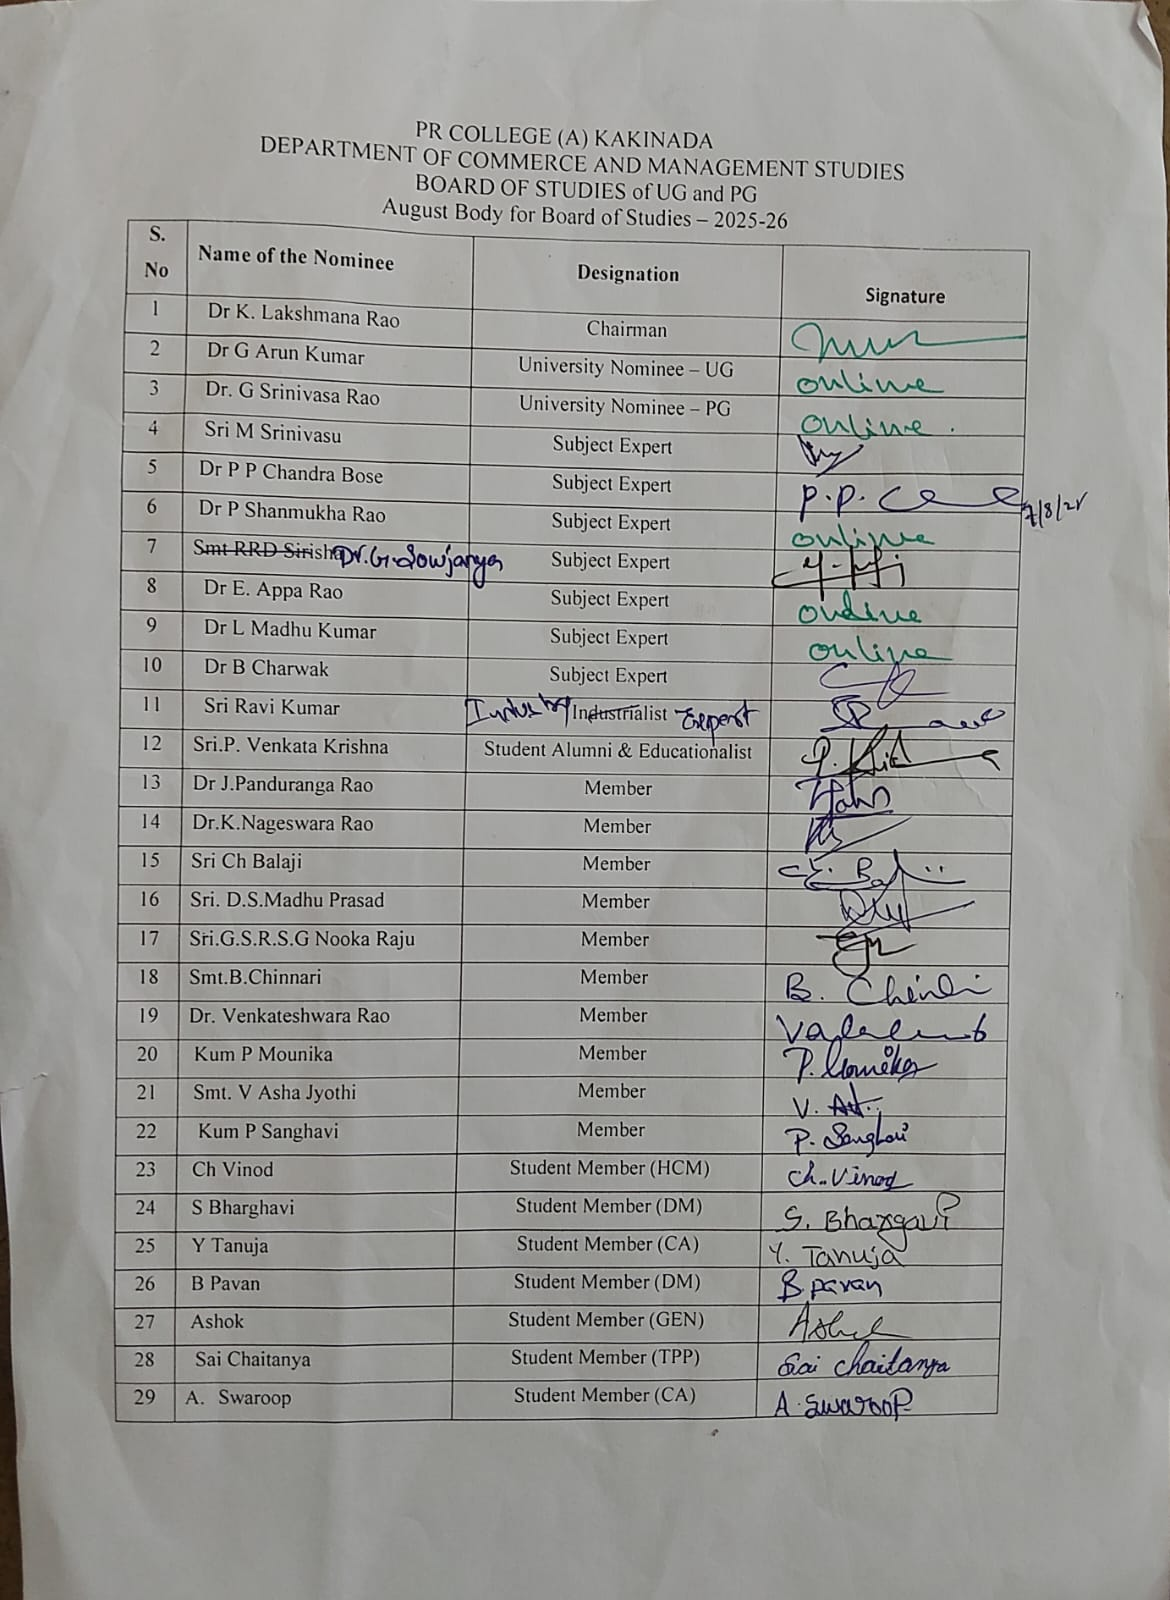 PR COLLEGE (A) KAKINADA
DEPARTMENT OF COMMERCE AND MANAGEMENT STUDIES
BOARD OF STUDIES of UG and PG
August Body for Board of Studies – 2025-26
S. No Name of the Nominee Designation Signature
1 Dr K. Lakshmana Rao Chairman
2 Dr G Arun Kumar University Nominee – UG online
3 Dr. G Srinivasa Rao University Nominee – PG online .
4 Sri M Srinivasu Subject Expert
5 Dr P P Chandra Bose Subject Expert P.P.
6 Dr P Shanmukha Rao Subject Expert online
7 Smt RRD Sirisha Dr. G. Sowjanya Subject Expert
8 Dr E. Appa Rao Subject Expert online
9 Dr L Madhu Kumar Subject Expert online
10 Dr B Charwak Subject Expert
11 Sri Ravi Kumar Industry Industrialist Expert
12 Sri.P. Venkata Krishna Student Alumni & Educationalist
13 Dr J.Panduranga Rao Member
14 Dr.K.Nageswara Rao Member
15 Sri Ch Balaji Member
16 Sri. D.S.Madhu Prasad Member
17 Sri.G.S.R.S.G Nooka Raju Member
18 Smt.B.Chinnari Member B.
19 Dr. Venkateshwara Rao Member
20 Kum P Mounika Member P. Mounika
21 Smt. V Asha Jyothi Member V.
22 Kum P Sanghavi Member P. Sanghavi
23 Ch Vinod Student Member (HCM) Ch. Vinod
24 S Bharghavi Student Member (DM) S. Bhargavi
25 Y Tanuja Student Member (CA) Y. Tanuja
26 B Pavan Student Member (DM) B. pavan
27 Ashok Student Member (GEN) Ashok
28 Sai Chaitanya Student Member (TPP) Sai chaitanya
29 A. Swaroop Student Member (CA) A. Swaroop